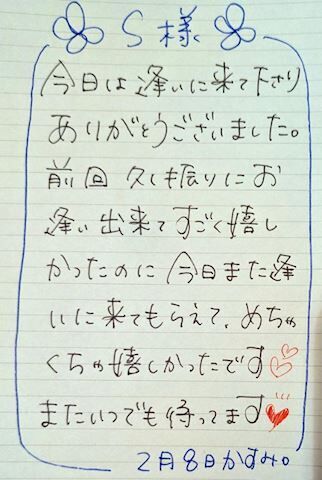 S様
今日は逢いに来て下さり
ありがとうございました。
前回久し振りにお
逢い出来てすごく嬉し
かったのに今日また逢
いに来てもらえて、めちゃ
くちゃ嬉しかったです
またいつでも待ってます
2月8日かすみ。